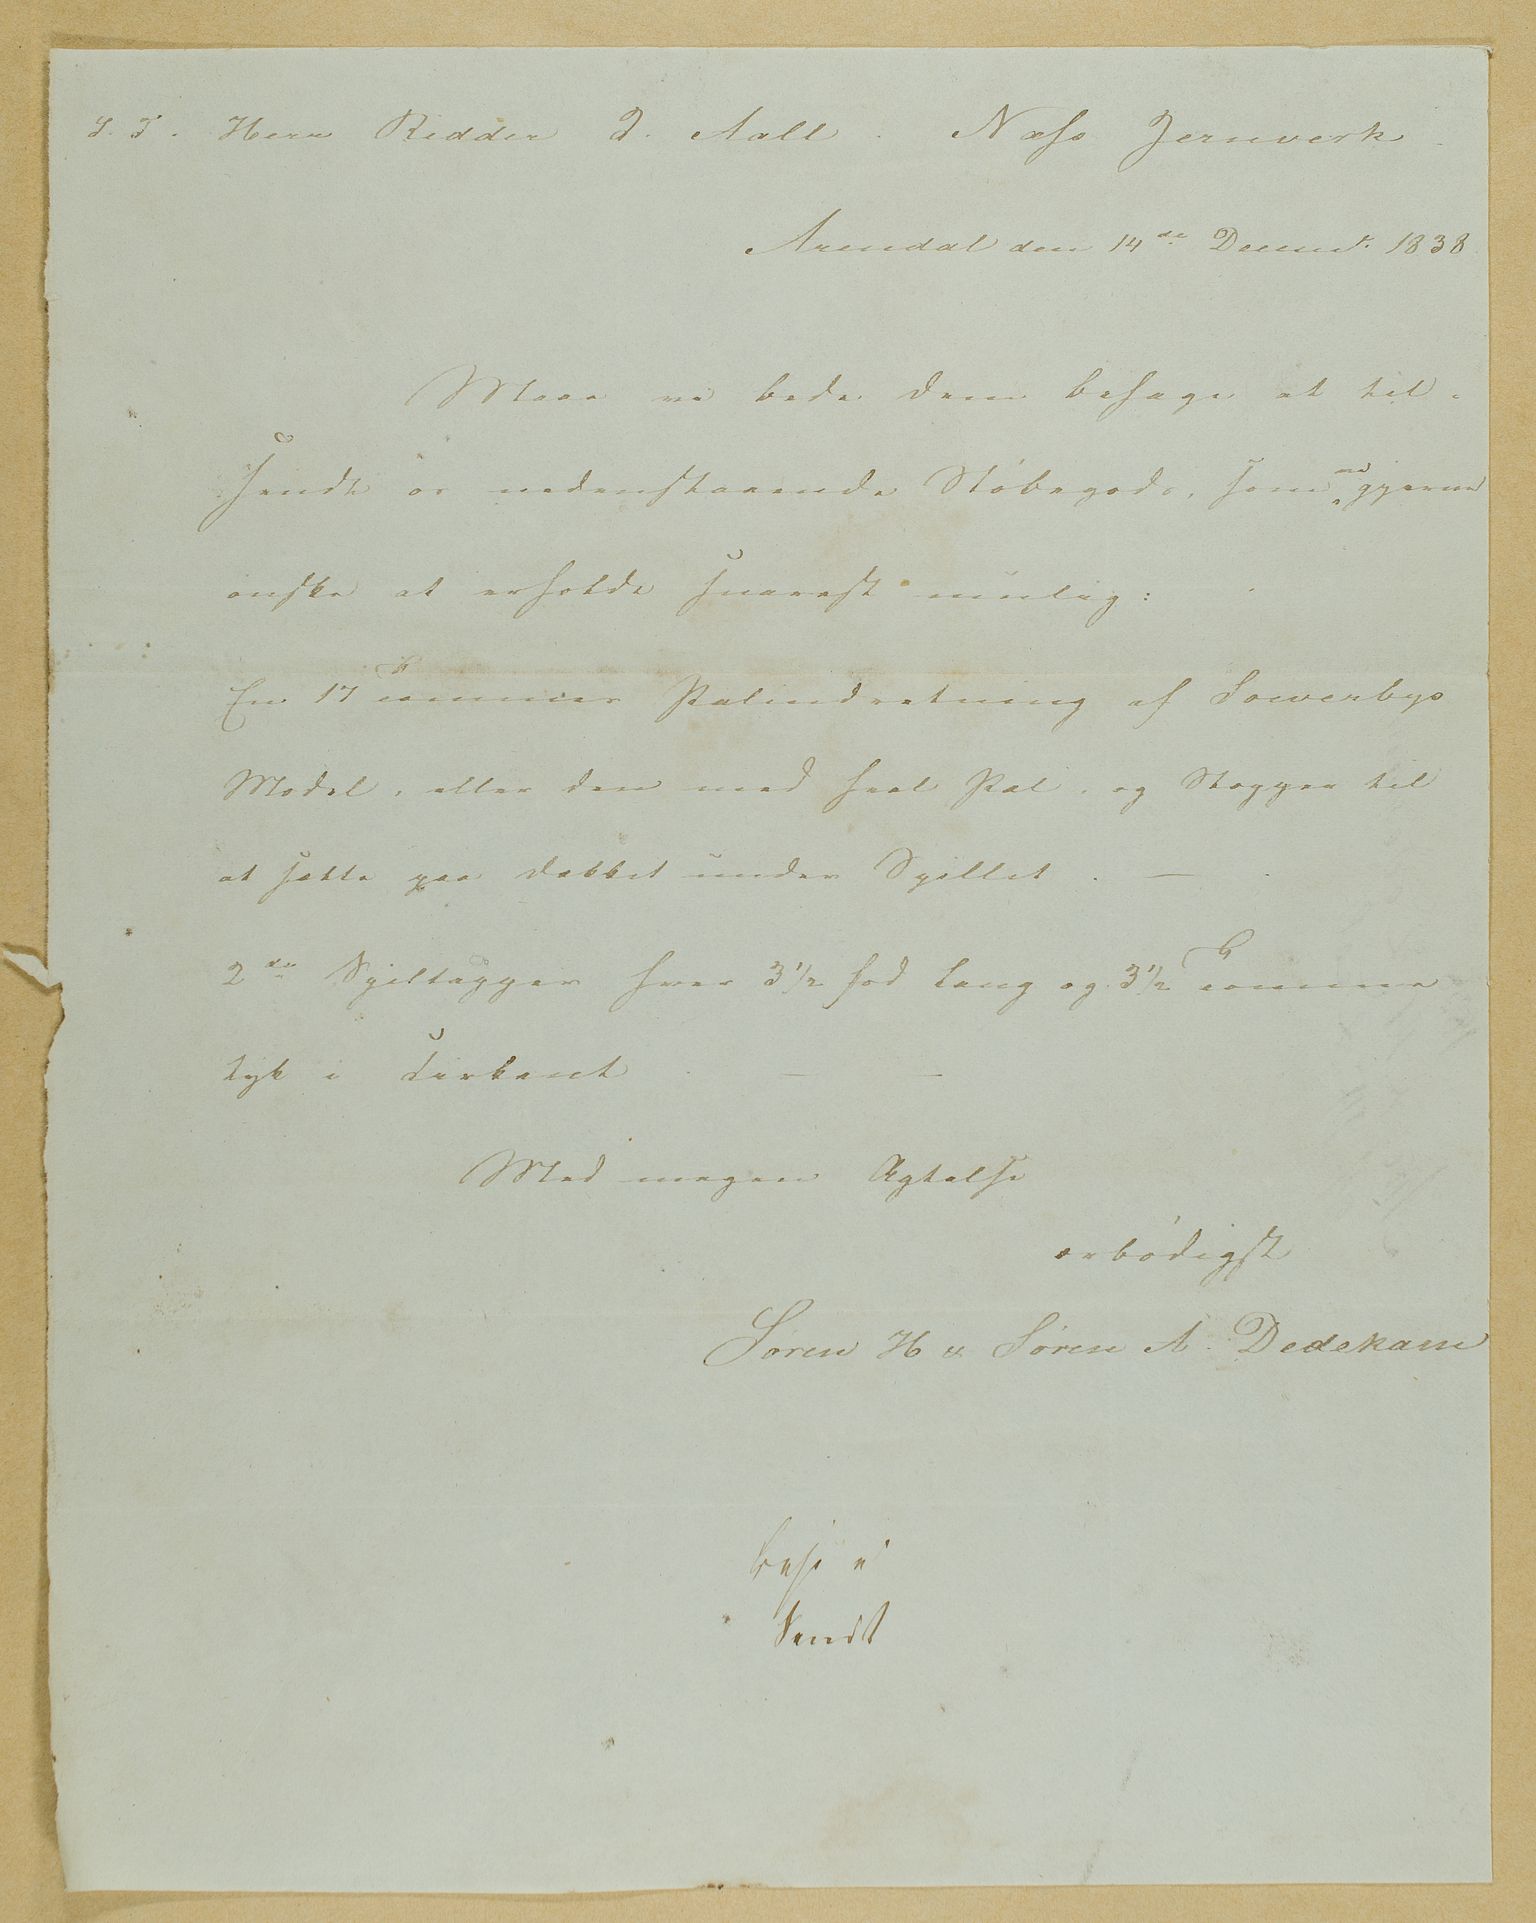 S. T. Herr Ridder J. Aall. Næss Jernverk.
Arendal den 14de Decembr. 1838
Maae vi bede Dem behage at til-
sende os nedenstaaende Støbegods, som vi gjerne
ønske at erholde snarest mulig:
En 17 tommes Palindretning af Sowerbys
Model, eller den med heel Pal, og Stopper til
at sætte paa Dækket under Spillet. —
2de Spiltapper hver 3 1/2 fod lang og 3 1/2 tomme
tyk i Firkant — —
Med megen Agtelse
ærbødigst
Søren H & Søren A. Dedekam
Sendt